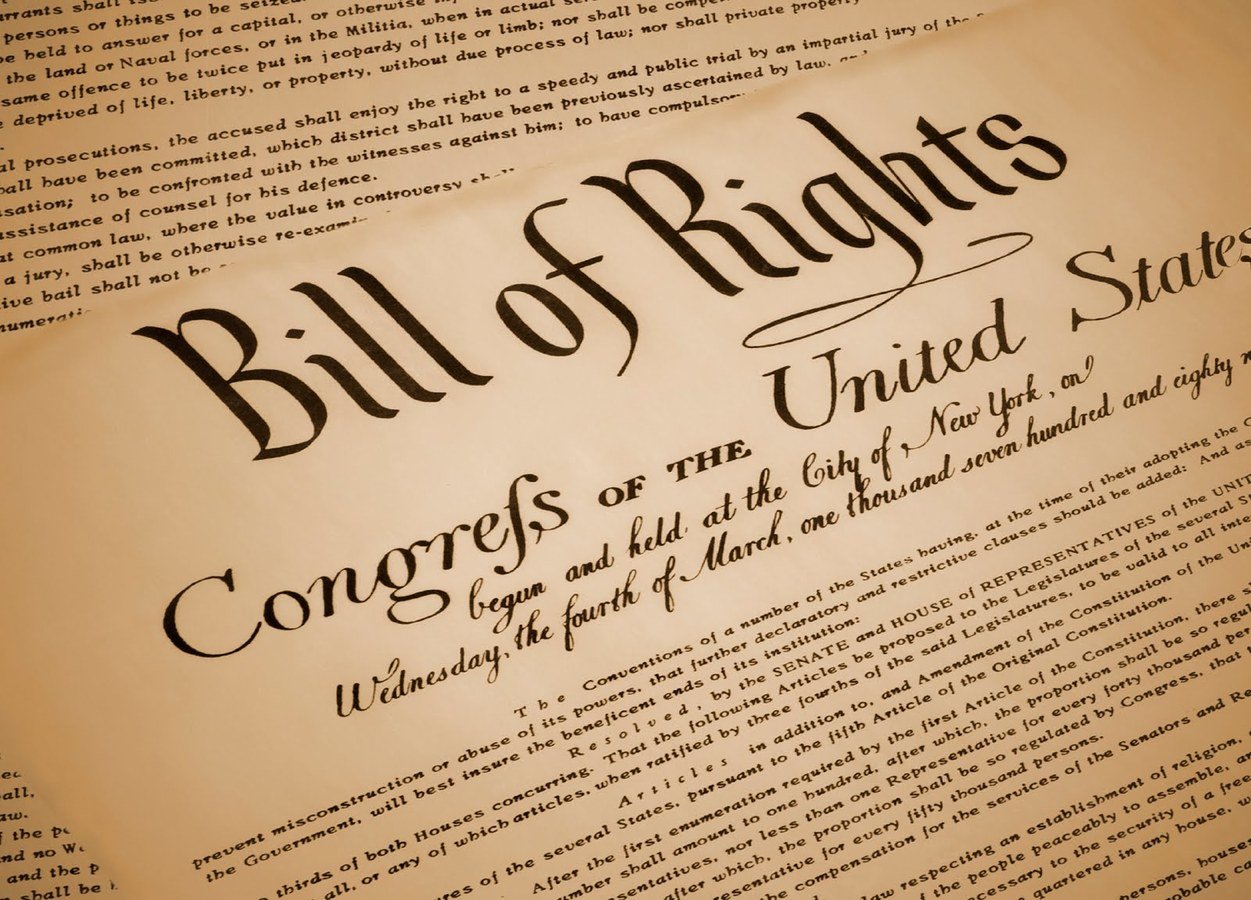 rrants shall
persons or things to be seized.
be held to answer for a capital, or otherwise
the land or Naval forces, or in the Militia, when in actual
same offence to be twice put in jeopardy of life or limb; nor shall be
e deprived of life, liberty, or property, without due process of law; nor shall private property
al prosecutions, the accused shall enjoy the right to a speedy and public trial by an impartial jury of the
hall have been committed, which district shall have been previously ascertained by law,
sation; to be confronted with the witnesses against him; to have compulsory
assistance of counsel for his defence.
at common law, where the value in controversy
a jury, shall be otherwise re-exami
ive bail shall not be
numerati
Bill of Rights
Congreſs OF THE United States
begun and held at the City of New York, on
Wednesday, the fourth of March, one thousand seven hundred and eighty n
The Conventions of a number of the States having, at the time of their adopting the C
prevent misconstruction or abuse of its powers, that further declaratory and restrictive clauses should be added: And as
the Government, will best insure the beneficent ends of its institution:
Resolved, by the SENATE and HOUSE of REPRESENTATIVES of the UNIT
thirds of both Houses concurring. That the following Articles be proposed to the Legislatures of the several S
all, or any of which articles, when ratified by three fourths of the said Legislatures, to be valid to all inte
Articles in addition to, and Amendment of the Constitution of the Uni
res of the several States, pursuant to the fifth Article of the Original Constitution.
After the first enumeration required by the first Article of the Constitution, there s
mber shall amount to one hundred, after which, the proportion shall be so regu
sentatives, nor less than one Representative for every forty thousand per
after which, the proportion shall be so regulated by Congress, that t
resentative for every fifty thousand persons.
the compensation for the services of the Senators and Re
law respecting an establishment of religion,
of the people peaceably to assemble, an
cessary to the security of a free
quartered in any house, w
persons, houses
robable ca
all,
aw.
f the pe
nd no W
and the p
shall be